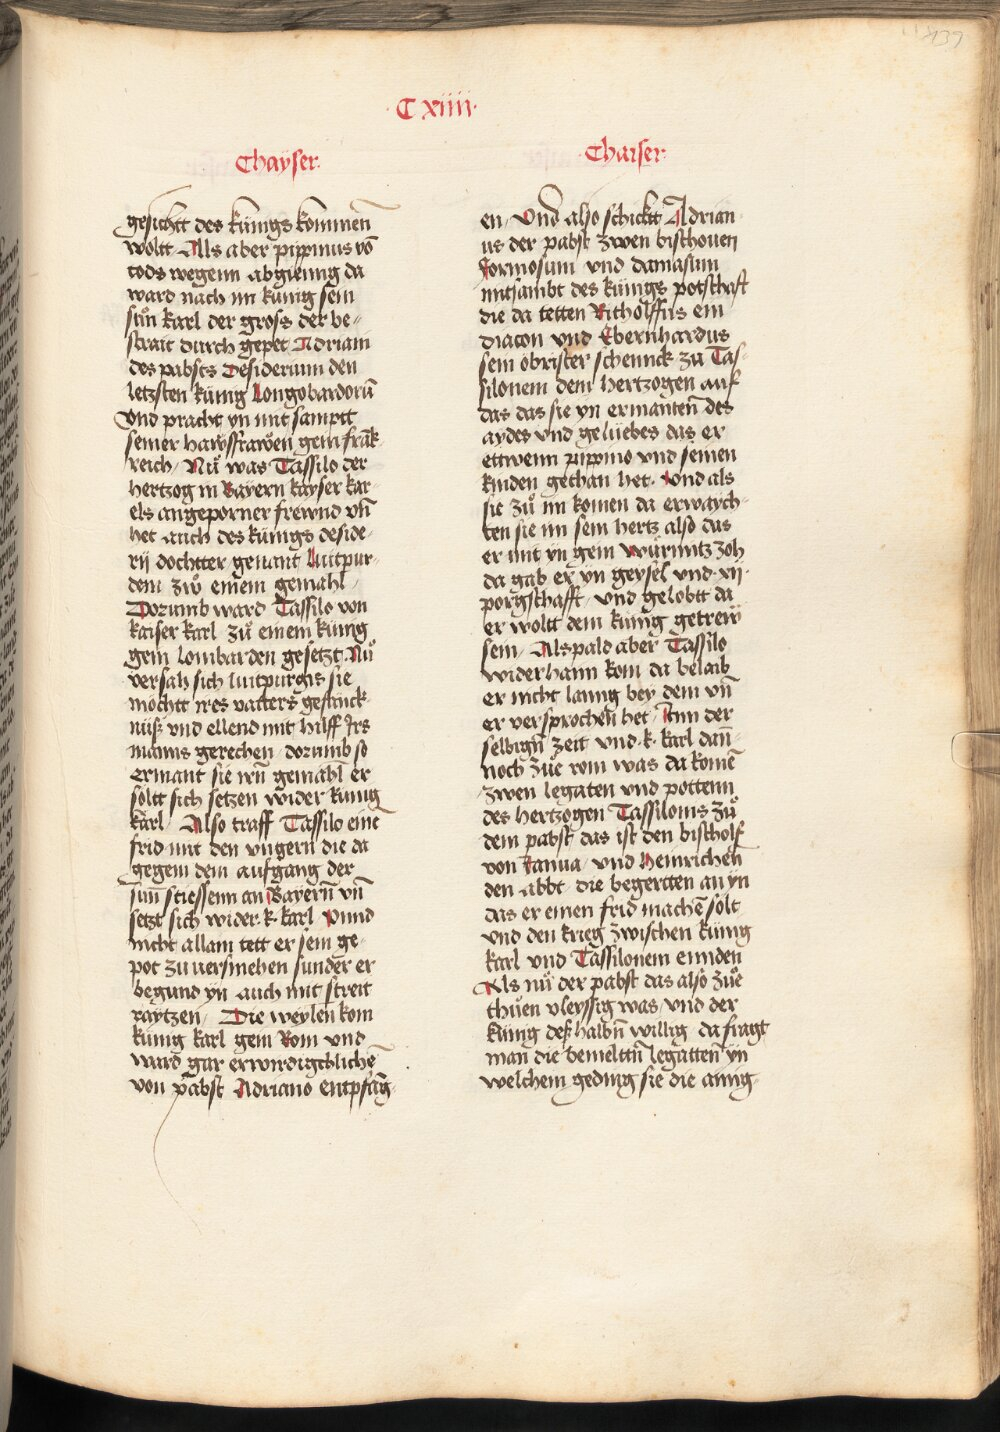 C xiiii
Chayser
gesichtt des künigs kommen̄
woltt Alls aber pippinus vō
tods wegenn abgienng da
ward nach im künig sein
sůn karl der gross der be-
strait durch gepet Adriani
des pabsts Desiderium den
letzsten künig Longobardorū
vnd pracht yn mit samptt
seiner hawssfrawen gein frāk-
reich / Nů was Tassilo der
hertzog in Bayern kayser kar-
els angeporner frewnd vn̄
het auch des künigs deside-
rij dochtter genant Luitpur-
dem zů einem gemahl /
Dorumb ward Tassilo von
kaiser karl zů einem künig
gein lombarden gesetzt. Nů
versah sich luitpurgis sie
möchtt ires vatters gefänck-
nüß vnd ellend mit hilff Irs
manns gerechen dorumb so
ermant sie irn̄ gemahl er
söltt sich setzen wider künig
karl / Also traff Tassilo eine
frid mit den vngern̄ die da
gegem dem aufgang der
sun̄ stiessenn an Bayern̄ vn̄
setzt sich wider . k . karl Vnnd
nicht allain tett er sein ge-
pot zu uersmehen sunder er
begund yn auch mit streit
raytzen / Die weylen kom
künig karl gem Rom vnd
ward gar erwirdigchlichē
von pabst Adriano entpfāg-
Chaiser
en / Vnd also schicktt Adrian-
us der pabst zwen bischouen
formosum vnd damasum
mitsambt des künigs potschaft
die da tetten Ritholffus ein
diacon vnd Ebernhardus
sein obrister schennck zu Tas-
silonem dem hertzogen auf
das das sie yn ermanten̄ des
aydes vnd gelüebes das er
ettwenn pippino vnd seinen
kinden gethan het . Vnd als
sie zů im komen da erwaych-
ten sie im sein hertz also das
er mit yn gein würmitz zoh
da gab er yn geysel vnd . xij .
porgschafft / vnd gelobtt da
er woltt dem künig getrew
sein / Alspald aber Tassilo
widerhann kom da belaib
er nicht lanng bey dem vn̄
er versprochen̄ het / Inn der
selbign̄ zeit vnd . k . karl dan̄-
noch zůe rom was da komē
zwen legaten vnd pottenn
des hertzogen Tassilonis zů
dem pabst das ist den bischolf
von Ianua / vnd Heinrichen
den abbt die begertten an yn
das er einen frid machē sölt
vnd den krieg zwischen künig
karl vnd Tassilonem ennden
Als nů der pabst das also zůe
thůen vleyssig was / vnd der
künig deßhalbn̄ willig da fragt
man die bemelttn̄ legatten̄ yn
welchem geding sie die ainig-